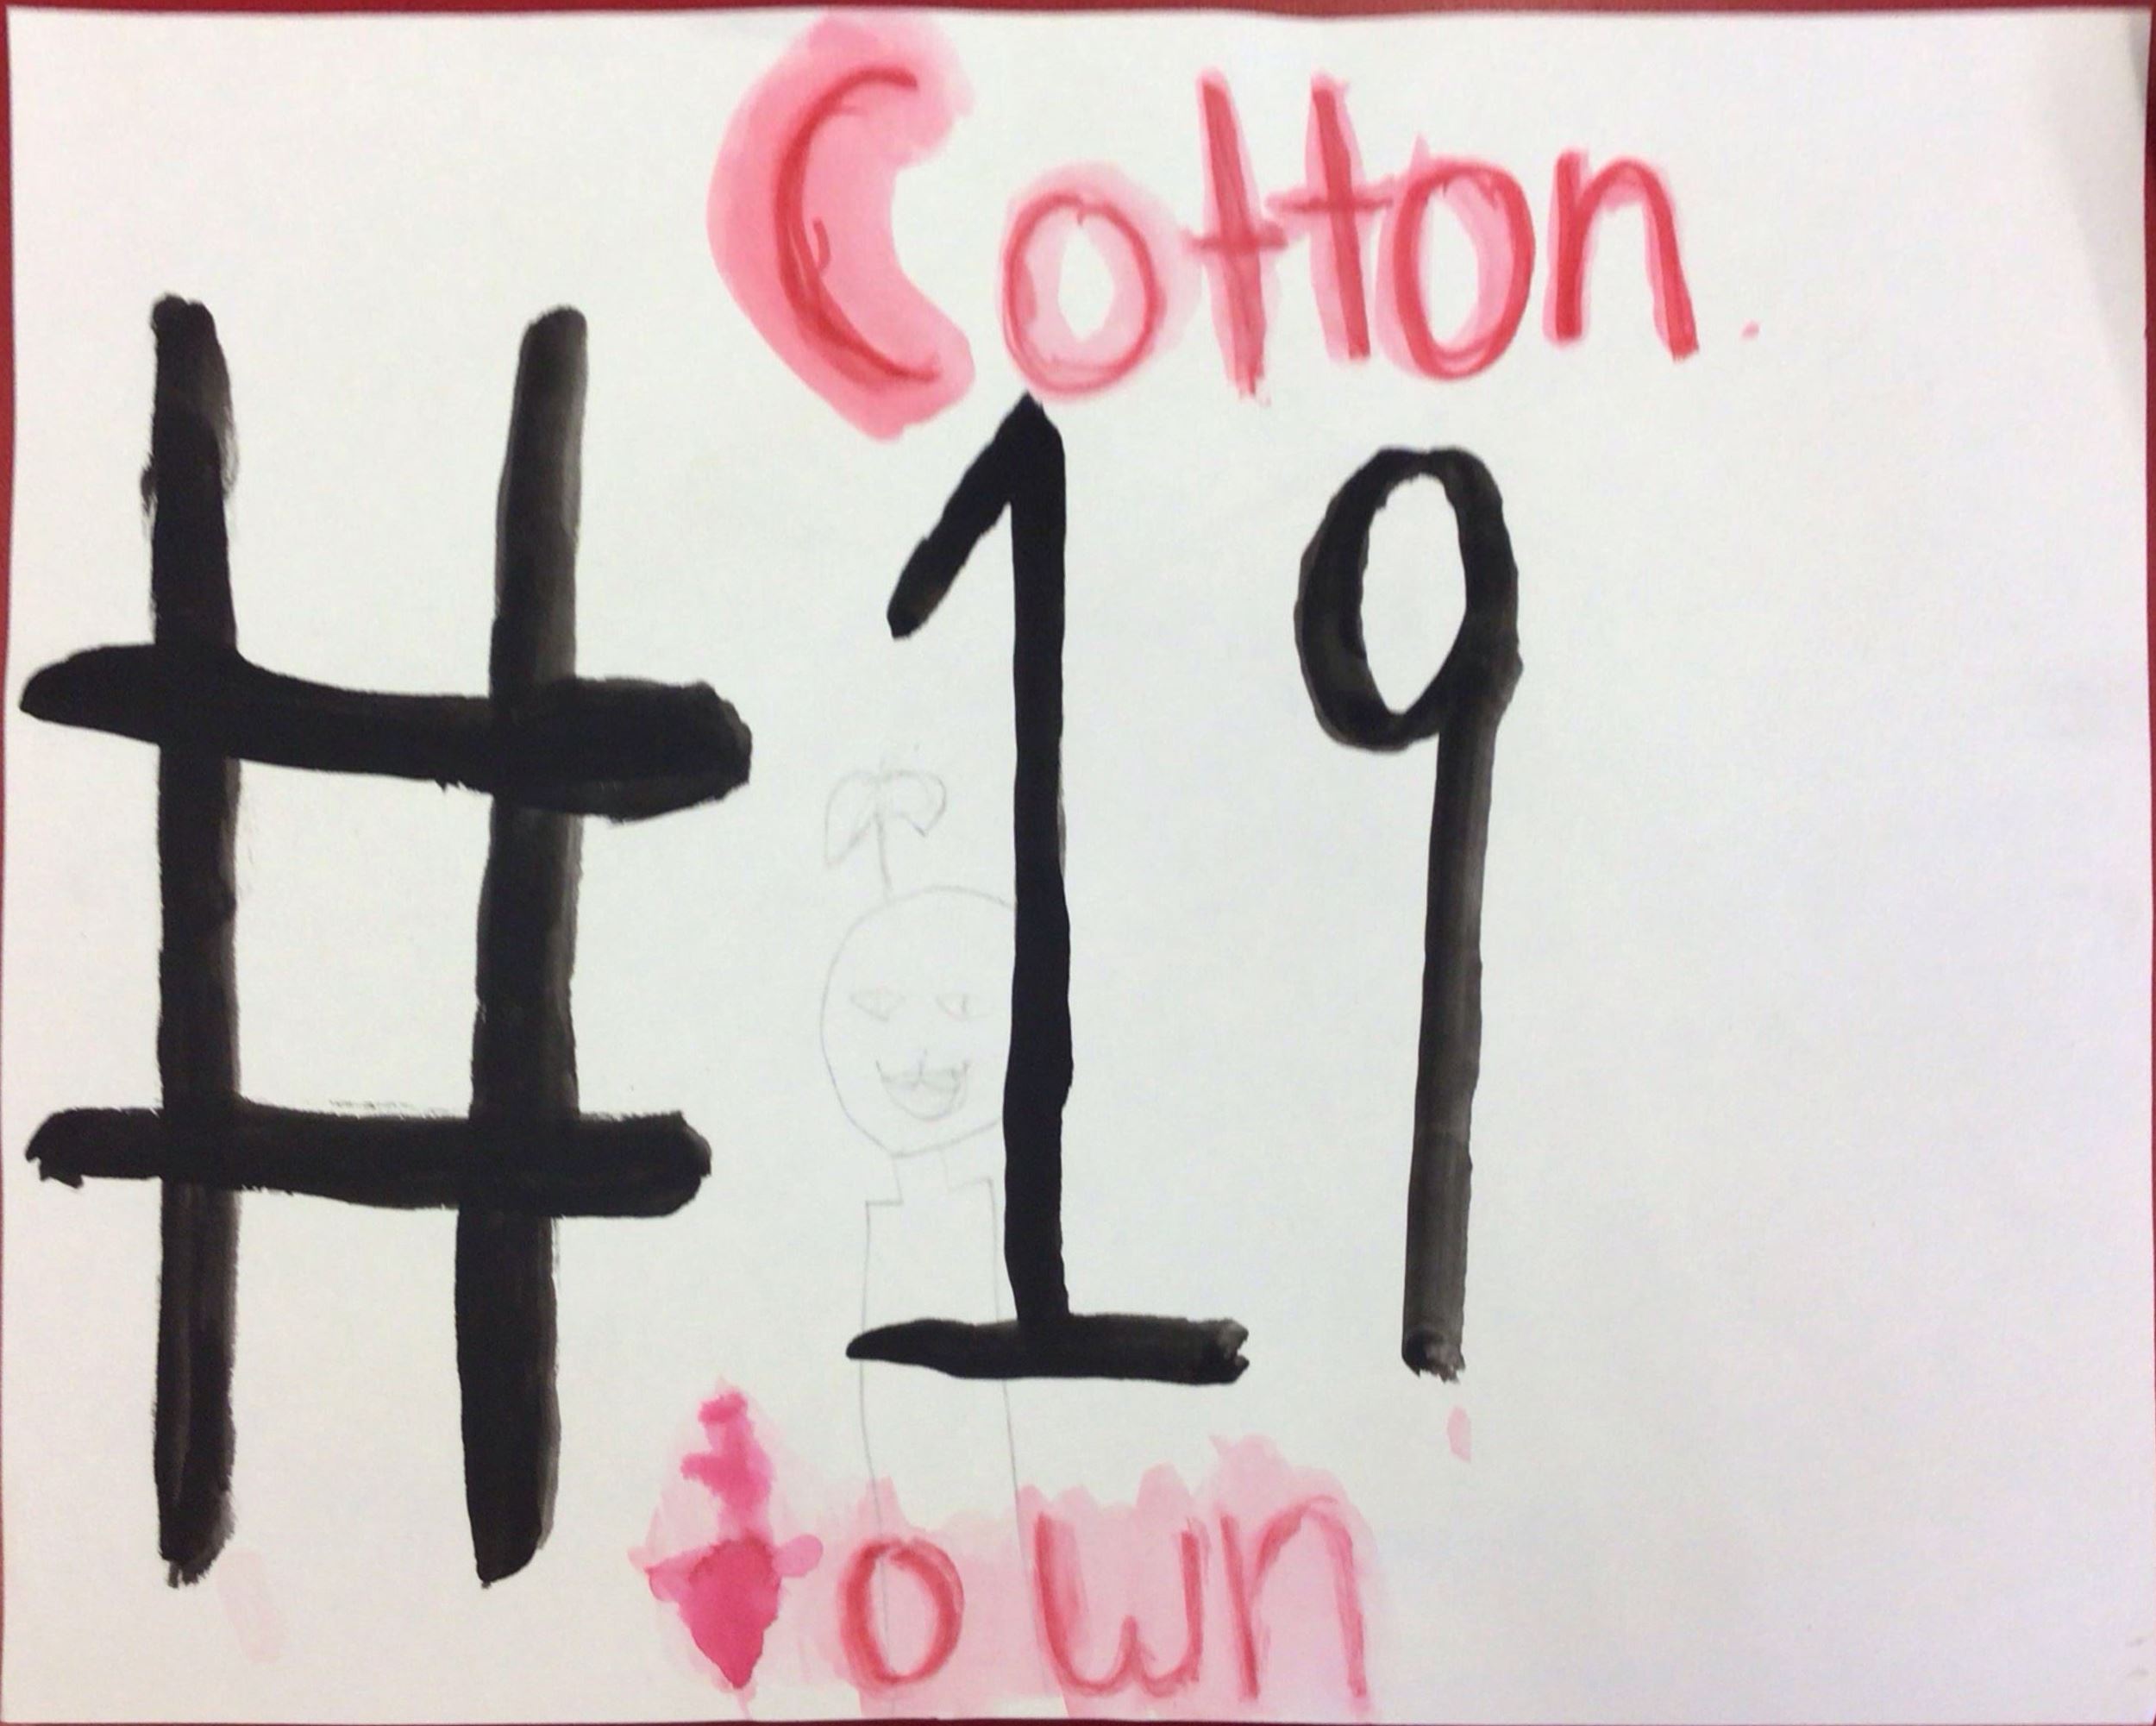 Cotton
#19
town